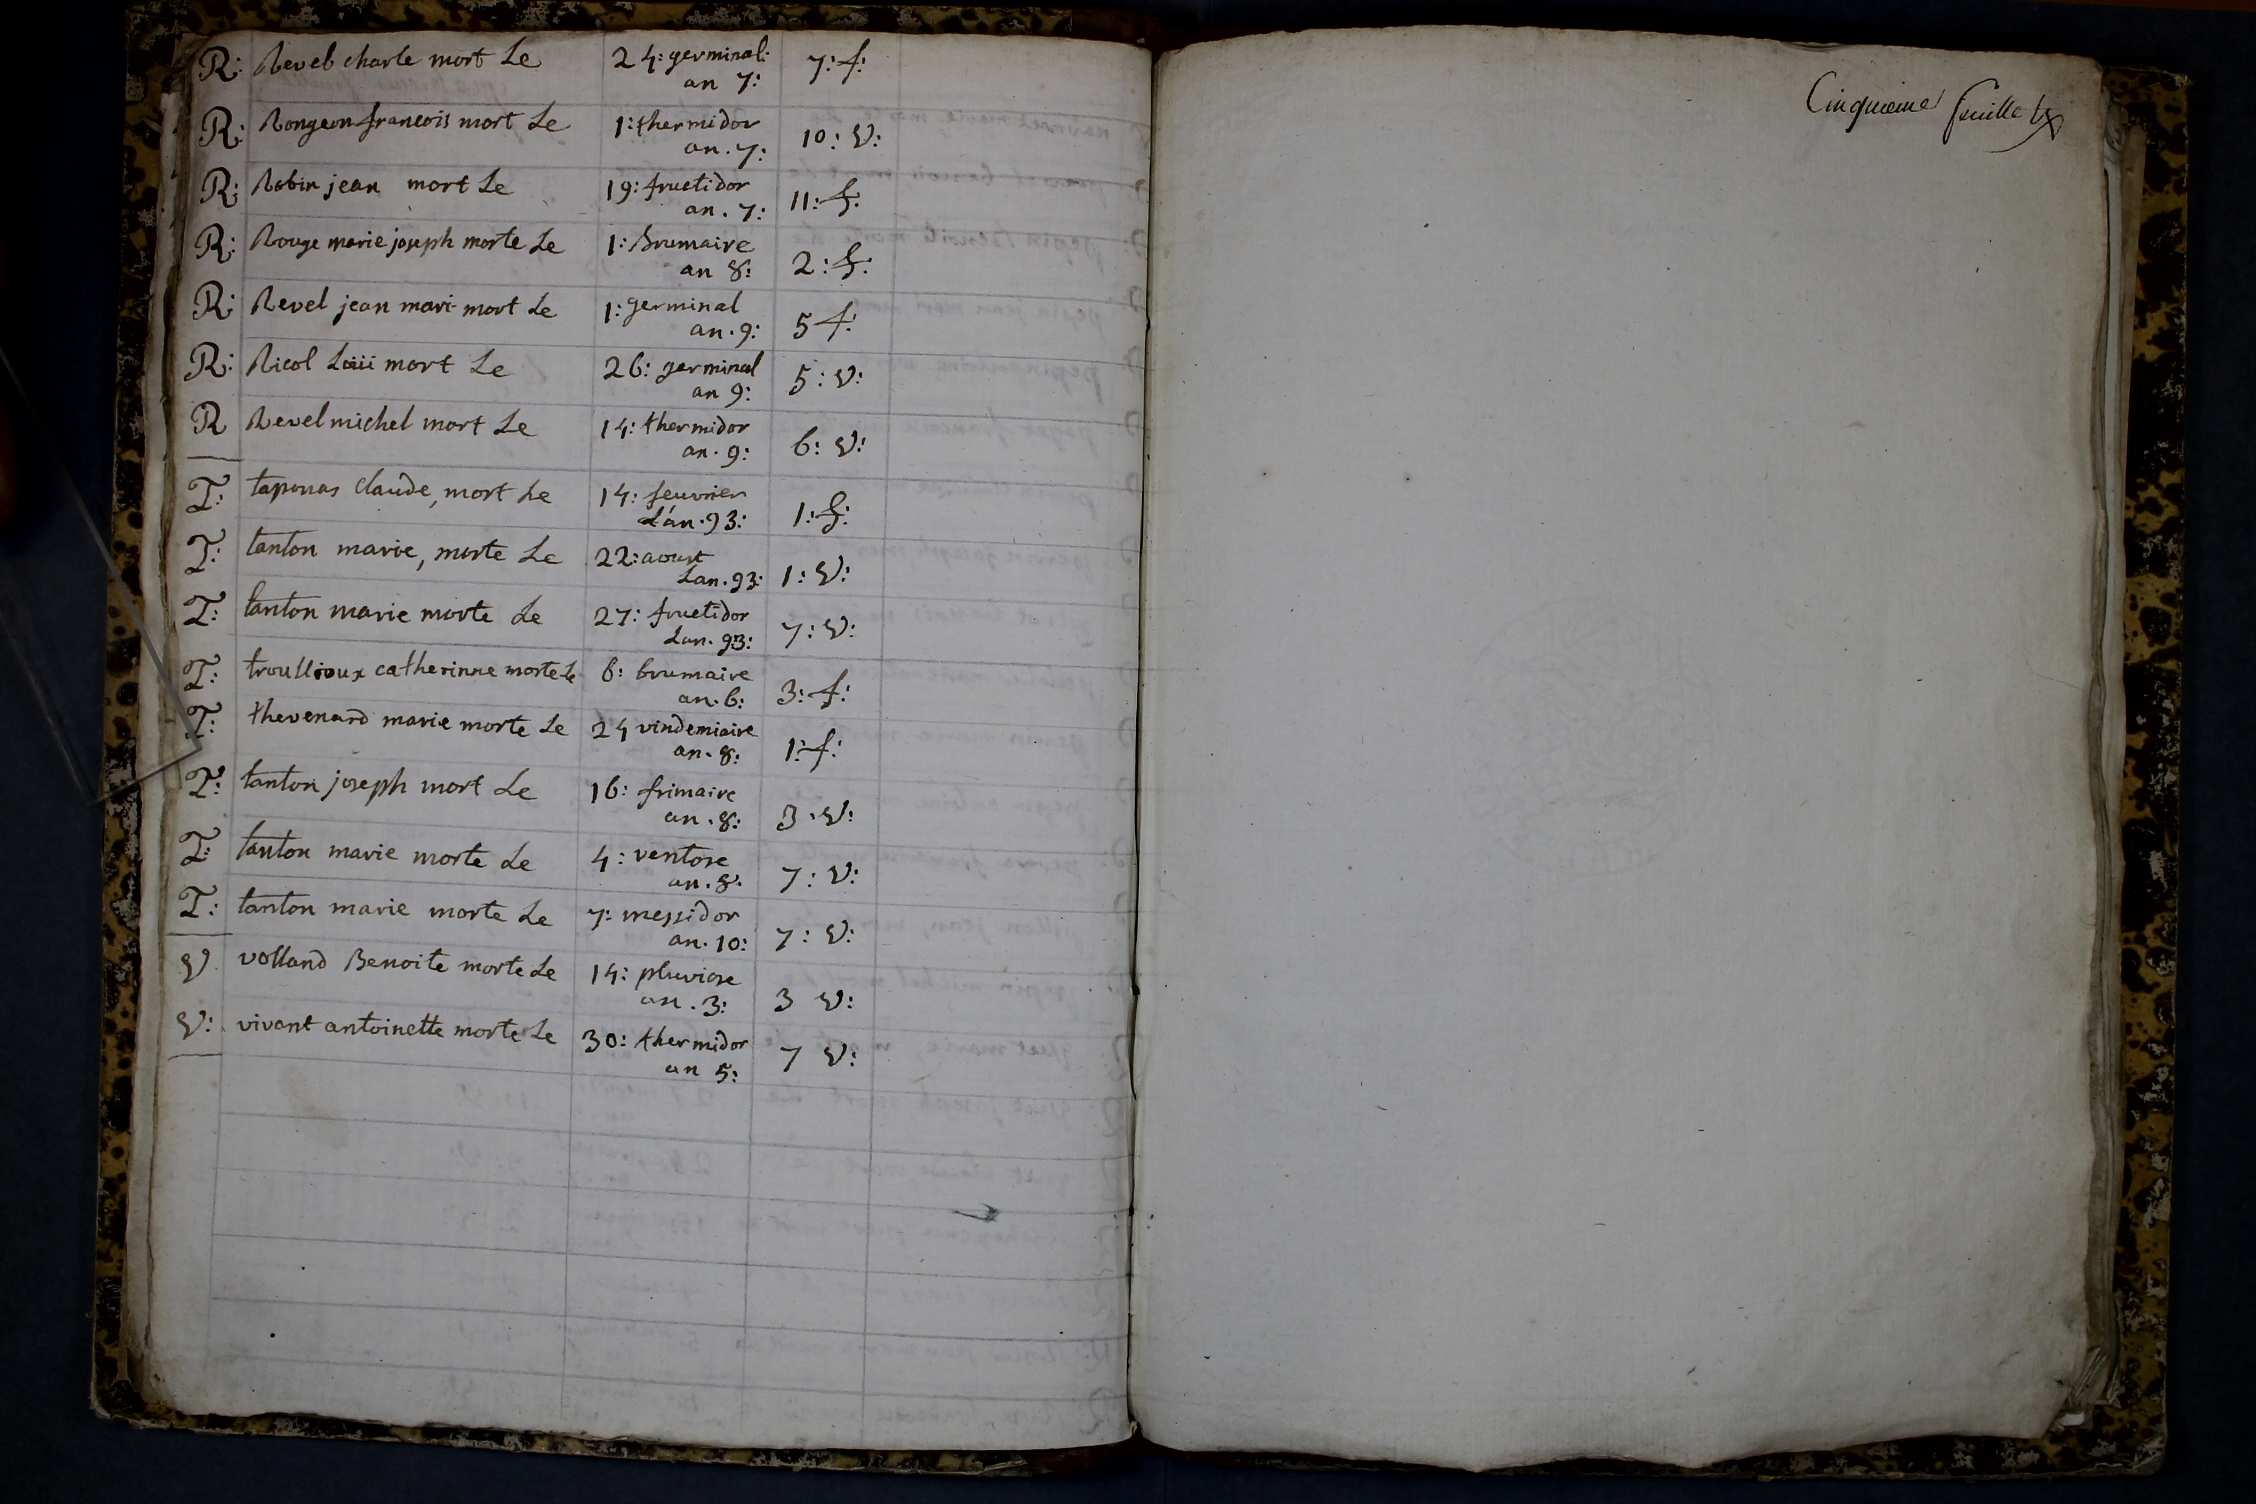 R: Revel charle mort Le 24: germinal:
an 7: 7: f:
R: Rongeon francois mort Le 1: thermidor
an. 7: 10: V:
R: Robin jean mort Le 19: fructidor
an. 7: 11: f:
R: Rouge marie joseph morte Le 1: Brumaire
an 8: 2: f:
R: Revel jean mari mort Le 1: germinal
an. 9: 5 f:
R: Ricol mort Le 26: germinal
an 9: 5: V:
R Revel michel mort Le 14: thermidor
an. 9: 6: V:
T: taponas claude, mort Le 14: feuvrier
Lan. 93: 1: f:
T: tanton marie, morte Le 22: aoust
Lan. 93: 1: V:
T: tanton marie morte Le 27: fructidor
Lan. 93: 7: V:
T: troullioux catherinne morte Le 6: brumaire
an. 6: 3: f:
T: thevenard marie morte Le 24 vindemiaire
an. 8: 1: f:
T: tanton joseph mort Le 16: frimaire
an. 8: 3. V:
T: tanton marie morte Le 4: ventose
an. 8. 7: V:
T: tanton marie morte Le 7: messidor
an. 10: 7: V:
V volland Benoite morte Le 14: pluviose
an. 3: 3 V:
V: vivant antoinette morte Le 30: thermidor
an 5: 7 V:
Cinquieme feuillet